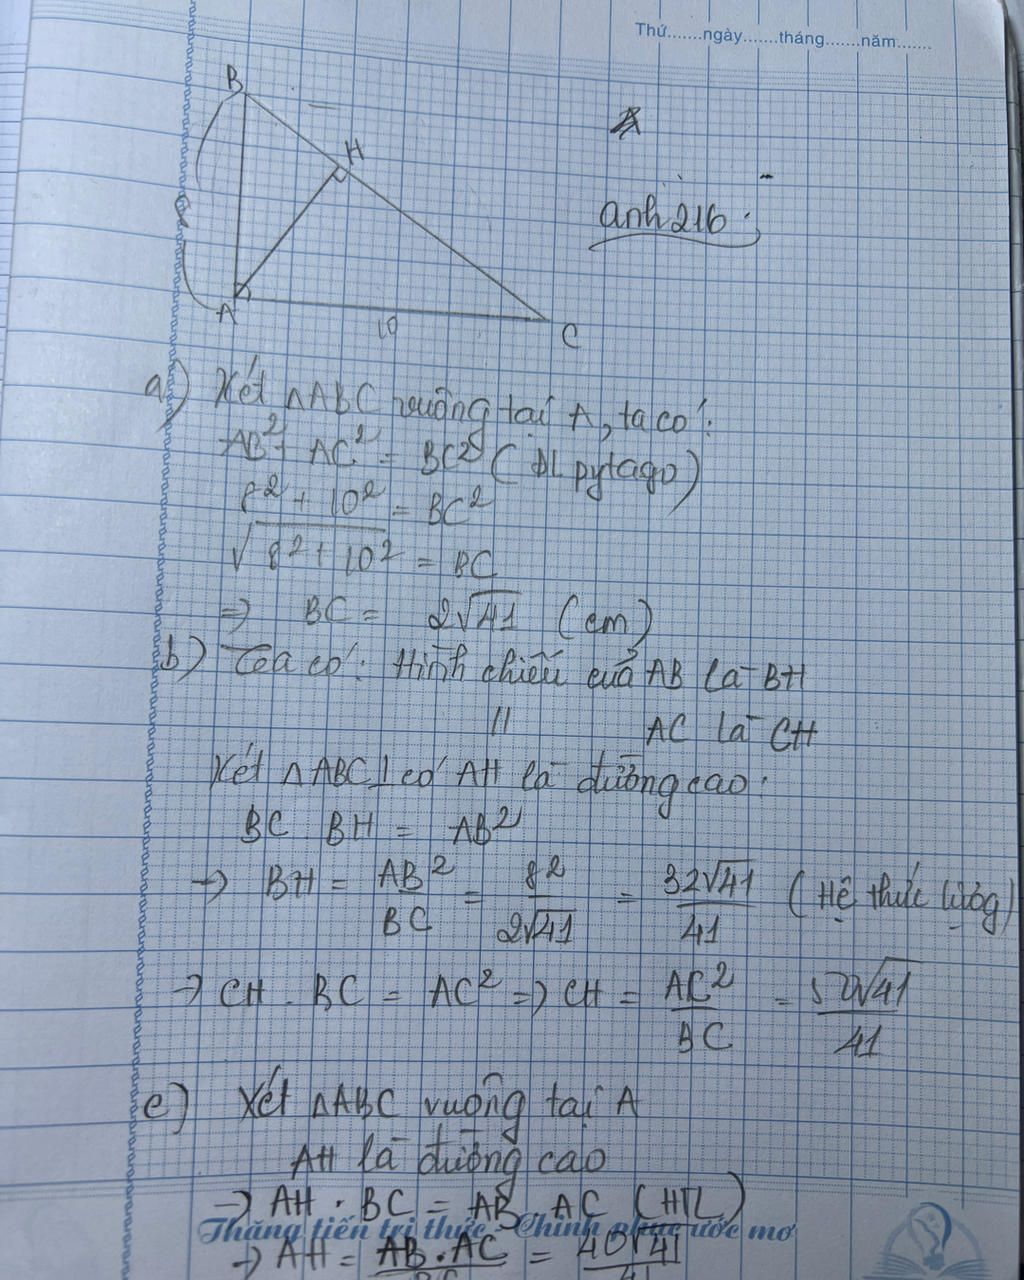 Thứ.......ngày.......tháng.......năm.......
B
H
anh 216
8
A
10
C
a) Xét △ABC vuông tại A, ta có:
AB² + AC² = BC² (ĐL pytago)
8² + 10² = BC²
√8² + 10² = BC
=> BC = 2√41 (cm)
b) Ta có: Hình chiếu của AB là BH
// AC là CH
Xét △ABC⊥ có AH là đường cao:
BC . BH = AB²
→ BH = AB²/BC = 8²/2√41 = 32√41/41 (Hệ thức lượng)
→ CH . BC = AC² => CH = AC²/BC = 50√41/41
c) Xét △ABC vuông tại A
AH là đường cao
→ AH . BC = AB . AC (HTL)
Thăng tiến tri thức - Chinh phục ước mơ
→ AH = AB.AC/BC = 40√41/41